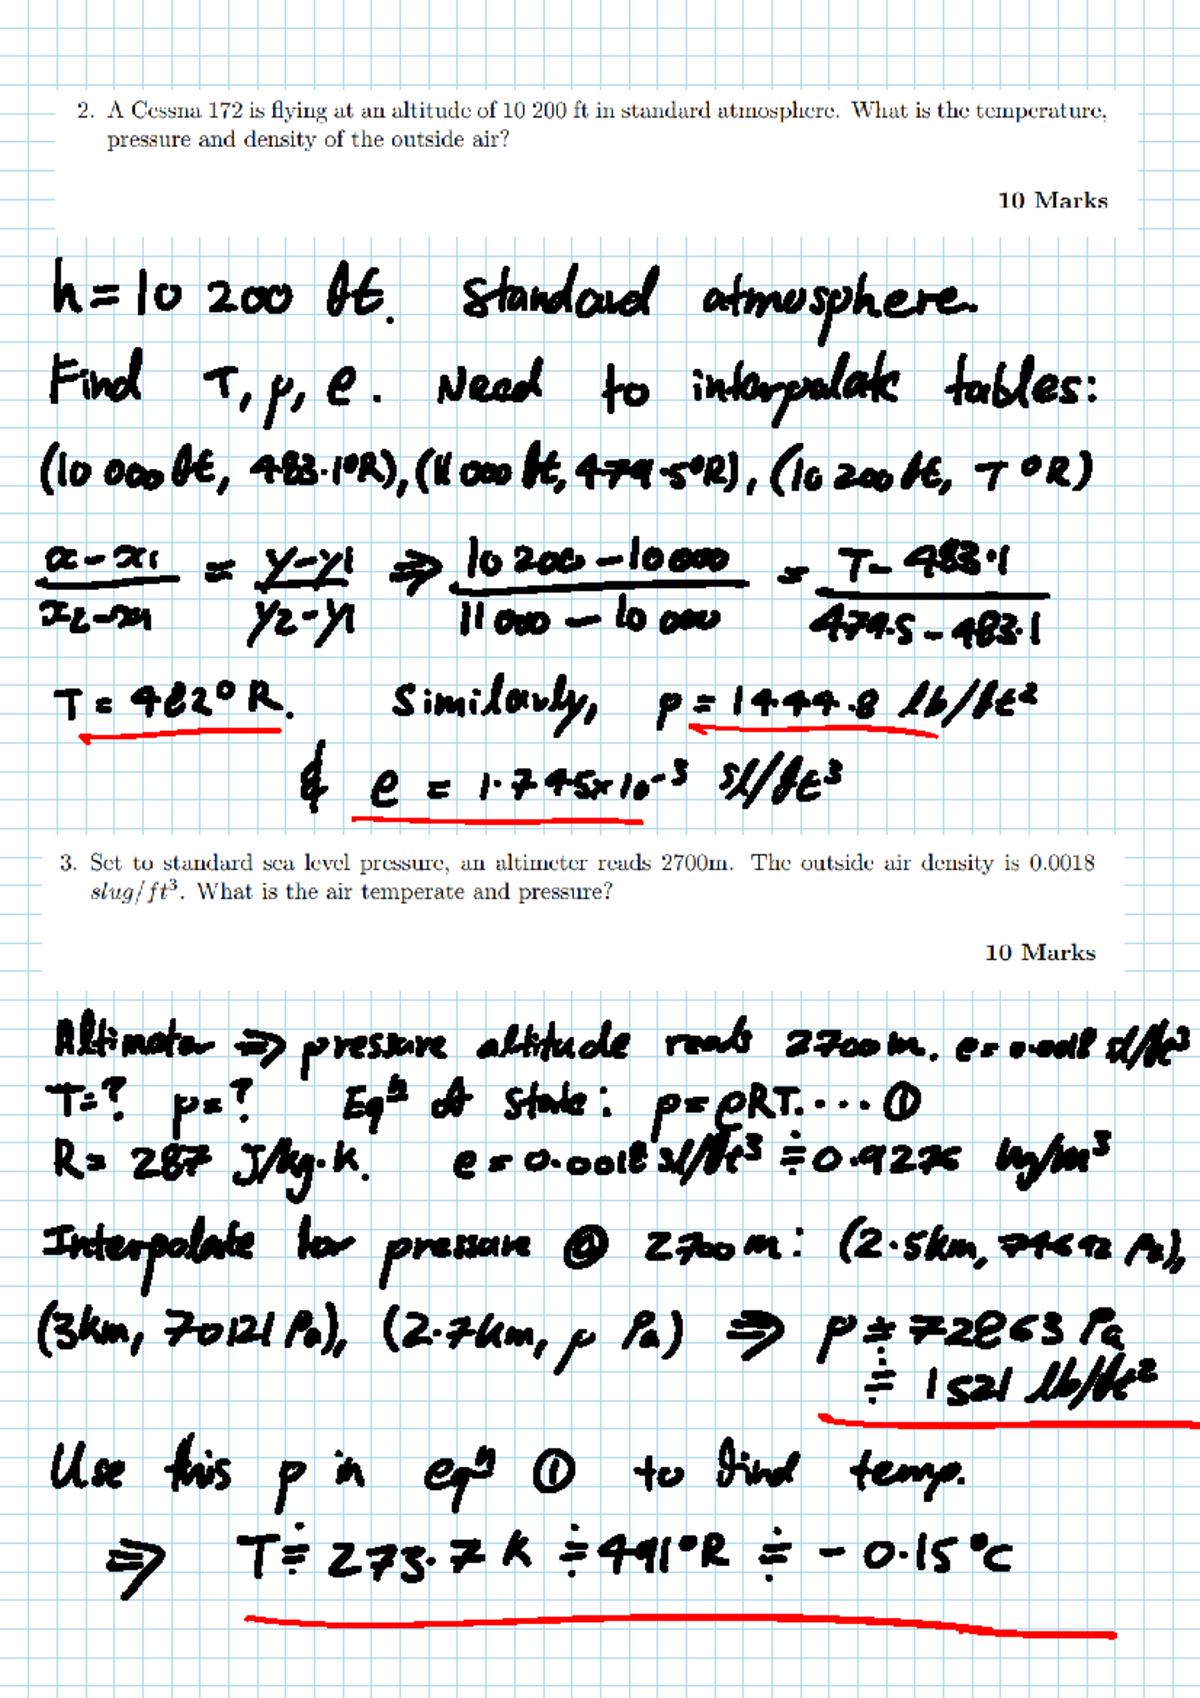 2. A Cessna 172 is flying at an altitude of 10 200 ft in standard atmosphere. What is the temperature,
pressure and density of the outside air?
10 Marks
h = 10 200 ft. Standard atmosphere.
Find T, p, ρ. Need to interpolate tables:
(10 000 ft, 483.1°R), (11 000 ft, 479.5°R), (10 200 ft, T °R)
x-x1 / x2-x1 = y-y1 / y2-y1 ⇒ 10 200 - 10 000 / 11 000 - 10 000 = T - 483.1 / 479.5 - 483.1
T = 482°R. Similarly, p = 1444.8 lb/ft²
& ρ = 1.745x10⁻³ sl/ft³
3. Set to standard sea level pressure, an altimeter reads 2700m. The outside air density is 0.0018
slug/ft³. What is the air temperate and pressure?
10 Marks
Altimeter ⇒ pressure altitude reads 2700m. ρ = 0.0018 sl/ft³
T=? p=? Eqⁿ of state: p = ρRT. ... ①
R = 287 J/kg.K. ρ = 0.0018 sl/ft³ ≑ 0.9276 kg/m³
Interpolate for pressure @ 2700m: (2.5km, 74692 Pa),
(3km, 70121 Pa), (2.7km, p Pa) ⇒ p ≑ 72863 Pa
≑ 1521 lb/ft²
Use this p in eqⁿ ① to find temp.
⇒ T ≑ 273.7 K ≑ 491°R ≑ -0.15°C